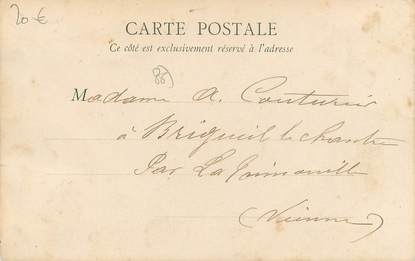 20 €
CARTE POSTALE
Ce côté est exclusivement réservé à l'adresse
Madame A. Couturier
à Brigueil le chantre
Par La Trimouille
(Vienne)